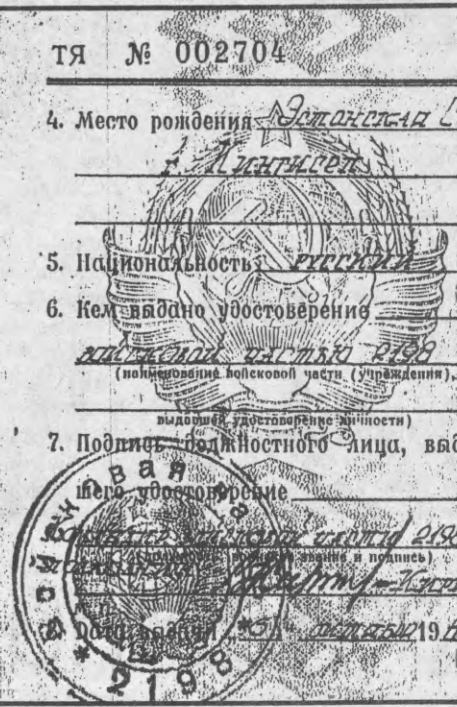 ТЯ № 002704
4. Место рождения Эстонская
г.
5. Национальность РУССКИЙ
6. Кем выдано удостоверение
войсковой частью 2198
(наименование войсковой части (учреждения),
выдавшей удостоверение личности)
7. Подпись должностного лица, выд
шего удостоверение
войсковой частью 2198
звание и подпись)
8. Дата выдачи 19
Войсковая
* 2198